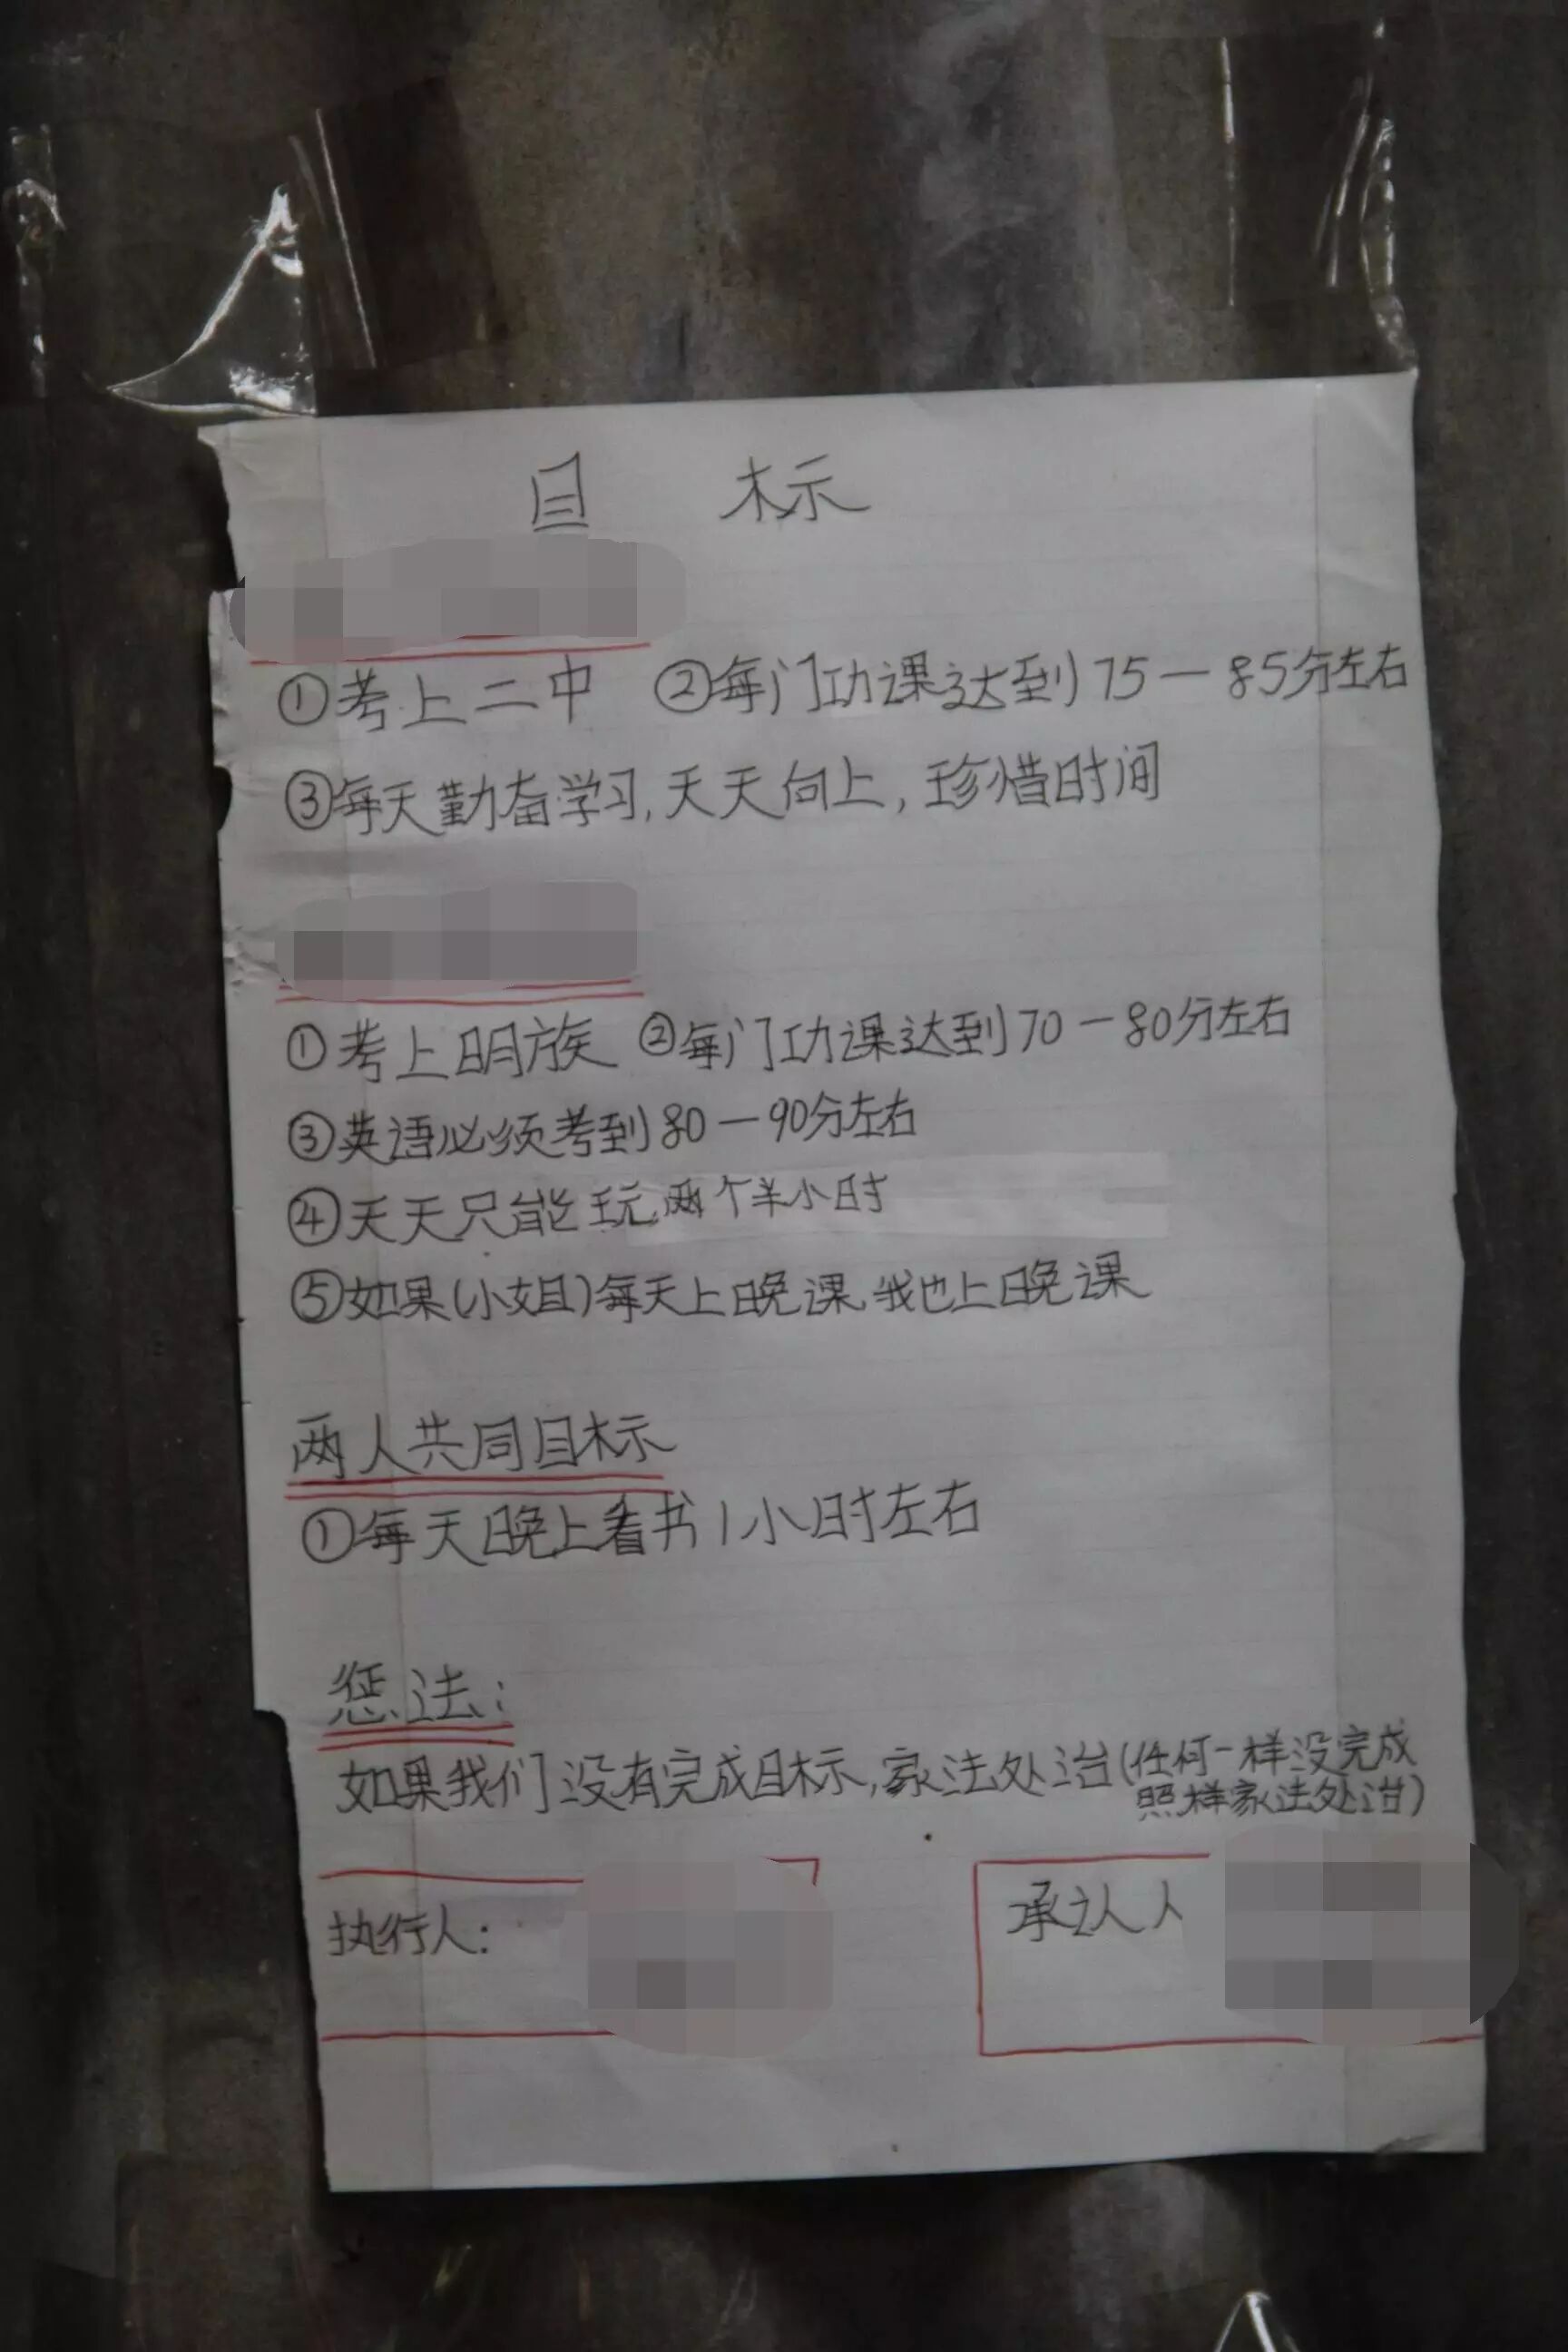 目 标
①考上二中 ②每门功课达到75—85分左右
③每天勤奋学习,天天向上,珍惜时间
①考上明族 ②每门功课达到70—80分左右
③英语必须考到80—90分左右
④天天只能玩两个半小时
⑤如果(小姐)每天上晚课,我也上晚课
两人共同目标
①每天晚上看书1小时左右
惩法:
如果我们没有完成目标,家法处治(任何一样没完成
照样家法处治)
执行人: 承认人